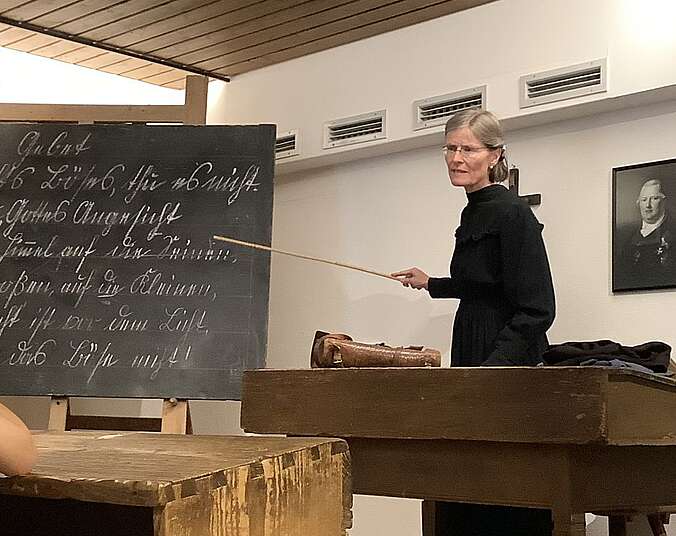 Gebet
Böses, thu es nicht.
Gottes Angesicht
Himmel auf die Seinen,
auf die Kleinen,
ist vor dem Licht,
das Böse nicht!